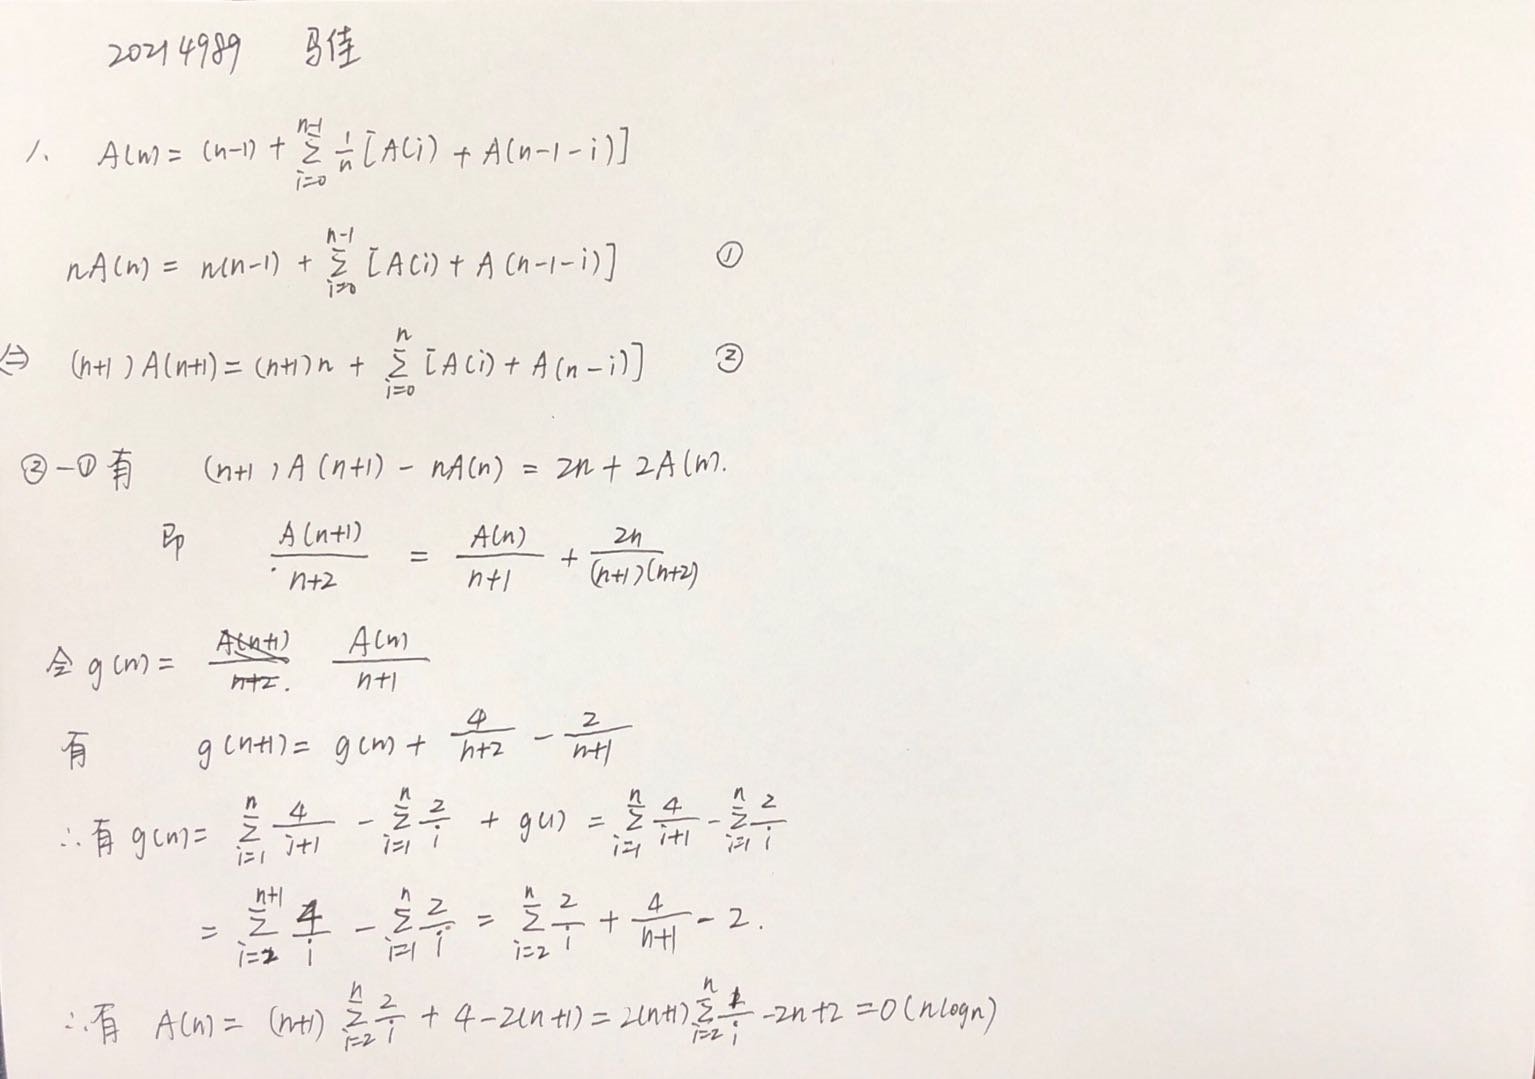 20214989 马佳
1、 A(n) = (n-1) + \sum_{i=0}^{n-1} \frac{1}{n} [A(i) + A(n-1-i)]
nA(n) = n(n-1) + \sum_{i=0}^{n-1} [A(i) + A(n-1-i)] ①
⇔ (n+1)A(n+1) = (n+1)n + \sum_{i=0}^{n} [A(i) + A(n-i)] ②
②-①有 (n+1)A(n+1) - nA(n) = 2n + 2A(n).
即 \frac{A(n+1)}{n+2} = \frac{A(n)}{n+1} + \frac{2n}{(n+1)(n+2)}
令 g(n) = \frac{A(n)}{n+1}
有 g(n+1) = g(n) + \frac{4}{n+2} - \frac{2}{n+1}
∴有 g(n) = \sum_{i=1}^{n} \frac{4}{i+1} - \sum_{i=1}^{n} \frac{2}{i} + g(1) = \sum_{i=1}^{n} \frac{4}{i+1} - \sum_{i=1}^{n} \frac{2}{i}
= \sum_{i=2}^{n+1} \frac{4}{i} - \sum_{i=1}^{n} \frac{2}{i} = \sum_{i=2}^{n} \frac{2}{i} + \frac{4}{n+1} - 2.
∴有 A(n) = (n+1) \sum_{i=2}^{n} \frac{2}{i} + 4 - 2(n+1) = 2(n+1) \sum_{i=2}^{n} \frac{1}{i} - 2n + 2 = O(nlogn)